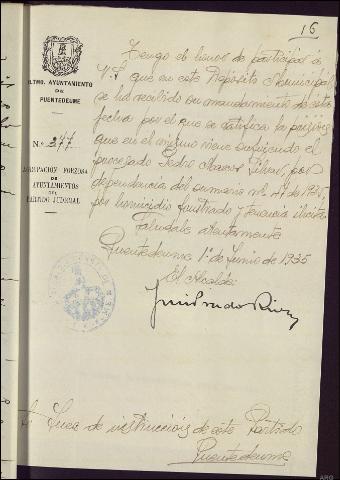 16
ILTMO. AYUNTAMIENTO
DE
PUENTEDEUME
N.º 247
AGRUPACIÓN FORZOSA
DE
AYUNTAMIENTOS
DEL
PARTIDO JUDICIAL
Tengo el honor de participar a
V.S que en este Depósito Municipal
se ha recibido su mandamiento de esta
fecha por el que se ratifica la prisión
que en el mismo viene sufriendo el
procesado Pedro por
dependencia del sumario nº de 1935,
por homicidio frustrado y tenencia ilícita
Salúdale atentamente
Puentedeume 1º de Junio de 1935
El Alcalde
Juez de instrucción de este Partido
Puentedeume
ARG